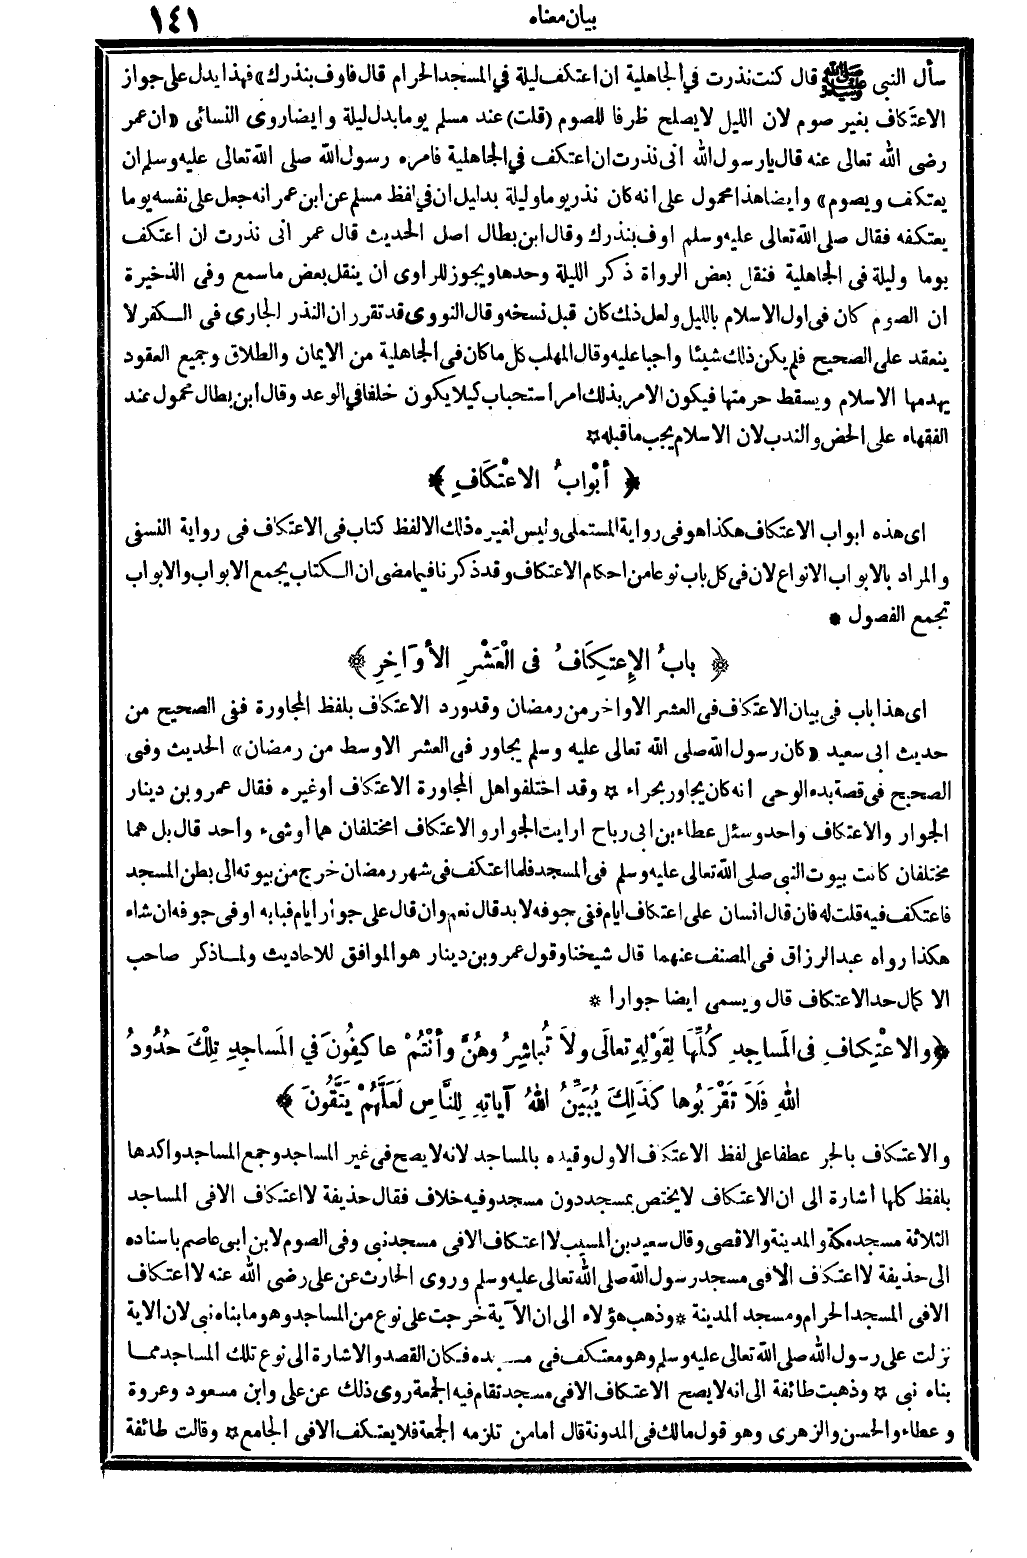 بيان معناه
١٤١
سأل النبي ﷺ قال كنت نذرت في الجاهلية ان اعتكف ليلة في المسجد الحرام قال فاوف بنذرك» فهذا يدل على جواز
الاعتكاف بغير صوم لان الليل لا يصلح ظرفا للصوم (قلت) عند مسلم يوما بدل ليلة وايضا روى النسائى «ان عمر
رضى الله تعالى عنه قال يا رسول الله انى نذرت ان اعتكف في الجاهلية فامره رسول الله صلى الله تعالى عليه وسلم ان
يعتكف ويصوم» وايضا هذا محمول على انه كان نذر يوما وليلة بدليل ان في لفظ مسلم عن ابن عمر انه جعل على نفسه يوما
يعتكفه فقال صلى الله تعالى عليه وسلم اوف بنذرك وقال ابن بطال اصل الحديث قال عمر انى نذرت ان اعتكف
يوما وليلة فى الجاهلية فنقل بعض الرواة ذكر الليلة وحدها ويجوز للراوى ان ينقل بعض ما سمع وفى الذخيرة
ان الصوم كان فى اول الاسلام بالليل ولعل ذلك كان قبل نسخه وقال النووى قد تقرر ان النذر الجارى فى الكفر لا
ينعقد على الصحيح فلم يكن ذلك شيئا واجبا عليه وقال المهلب كل ما كان فى الجاهلية من الايمان والطلاق وجميع العقود
يهدمها الاسلام ويسقط حرمتها فيكون الامر بذلك امر استحباب كيلا يكون خلفا في الوعد وقال ابن بطال محمول عند
الفقهاء على الحض والندب لان الاسلام يجب ما قبله ۞
﴿ أَبْوابُ الاعْتِكَافِ ﴾
اى هذه ابواب الاعتكاف هكذا هو فى رواية المستملى وليس لغيره ذلك الا لفظ كتاب فى الاعتكاف فى رواية النسفى
والمراد بالابواب الانواع لان فى كل باب نوعا من احكام الاعتكاف وقد ذكرنا فيما مضى ان الكتاب يجمع الابواب والابواب
تجمع الفصول *
﴿ بابُ الإِعتِكَافُ فى الْعَشْرِ الأَوَاخِرِ ﴾
اى هذا باب فى بيان الاعتكاف فى العشر الاواخر من رمضان وقد ورد الاعتكاف بلفظ المجاورة ففى الصحيح من
حديث ابى سعيد «كان رسول الله صلى الله تعالى عليه وسلم يجاور فى العشر الاوسط من رمضان» الحديث وفى
الصحيح فى قصة بدء الوحى انه كان يجاور بحراء ۞ وقد اختلفوا هل المجاورة الاعتكاف أو غيره فقال عمرو بن دينار
الجوار والاعتكاف واحد وسئل عطاء بن ابى رباح ارايت الجوار والاعتكاف امختلفان هما أو شىء واحد قال بل هما
مختلفان كانت بيوت النبى صلى الله تعالى عليه وسلم فى المسجد فلما اعتكف فى شهر رمضان خرج من بيوته الى بطن المسجد
فاعتكف فيه قلت له فان قال انسان على اعتكاف ايام ففى جوفه لابد قال نعم وان قال على جوار ايام فبابه او فى جوفه ان شاء
هكذا رواه عبد الرزاق فى المصنف عنهما قال شيخنا وقول عمرو بن دينار هو الموافق للاحاديث ولما ذكر صاحب
الاكمال حد الاعتكاف قال ويسمى ايضا جوارا *
﴿والاعْتِكافِ فى المَساجِدِ كُلِّهَا لِقَوْلِهِ تعالَى ولاَ تُباشِرُوهُنَّ وأنْتُمْ عاكِفُونَ في المَساجِدِ تِلْكَ حُدُودُ
اللهِ فَلاَ تَقْرَبُوها كَذَلِكَ يُبَيِّنُ اللهُ آياتِهِ لِلنَّاسِ لَعَلَّهُمْ يَتَّقُونَ ﴾
والاعتكاف بالجر عطفا على لفظ الاعتكاف الاول وقيده بالمساجد لانه لا يصح فى غير المساجد وجمع المساجد واكدها
بلفظ كلها اشارة الى ان الاعتكاف لا يختص بمسجد دون مسجد وفيه خلاف فقال حذيفة لا اعتكاف الا فى المساجد
الثلاثة مسجد مكة والمدينة والاقصى وقال سعيد بن المسيب لا اعتكاف الا فى مسجد نبى وفى الصوم لابن ابى عاصم باسناده
الى حذيفة لا اعتكاف الا فى مسجد رسول الله صلى الله تعالى عليه وسلم وروى الحارث عن على رضى الله عنه لا اعتكاف
الا فى المسجد الحرام ومسجد المدينة * وذهب هؤلاء الى ان الآية خرجت على نوع من المساجد وهو ما بناه نبى لان الاية
نزلت على رسول الله صلى الله تعالى عليه وسلم وهو معتكف فى مسجده فكان القصد والاشارة الى نوع تلك المساجد مما
بناه نبى ۞ وذهبت طائفة الى انه لا يصح الاعتكاف الا فى مسجد تقام فيه الجمعة روى ذلك عن على وابن مسعود وعروة
وعطاء والحسن والزهرى وهو قول مالك فى المدونة قال اما من تلزمه الجمعة فلا يعتكف الا فى الجامع ۞ وقالت طائفة